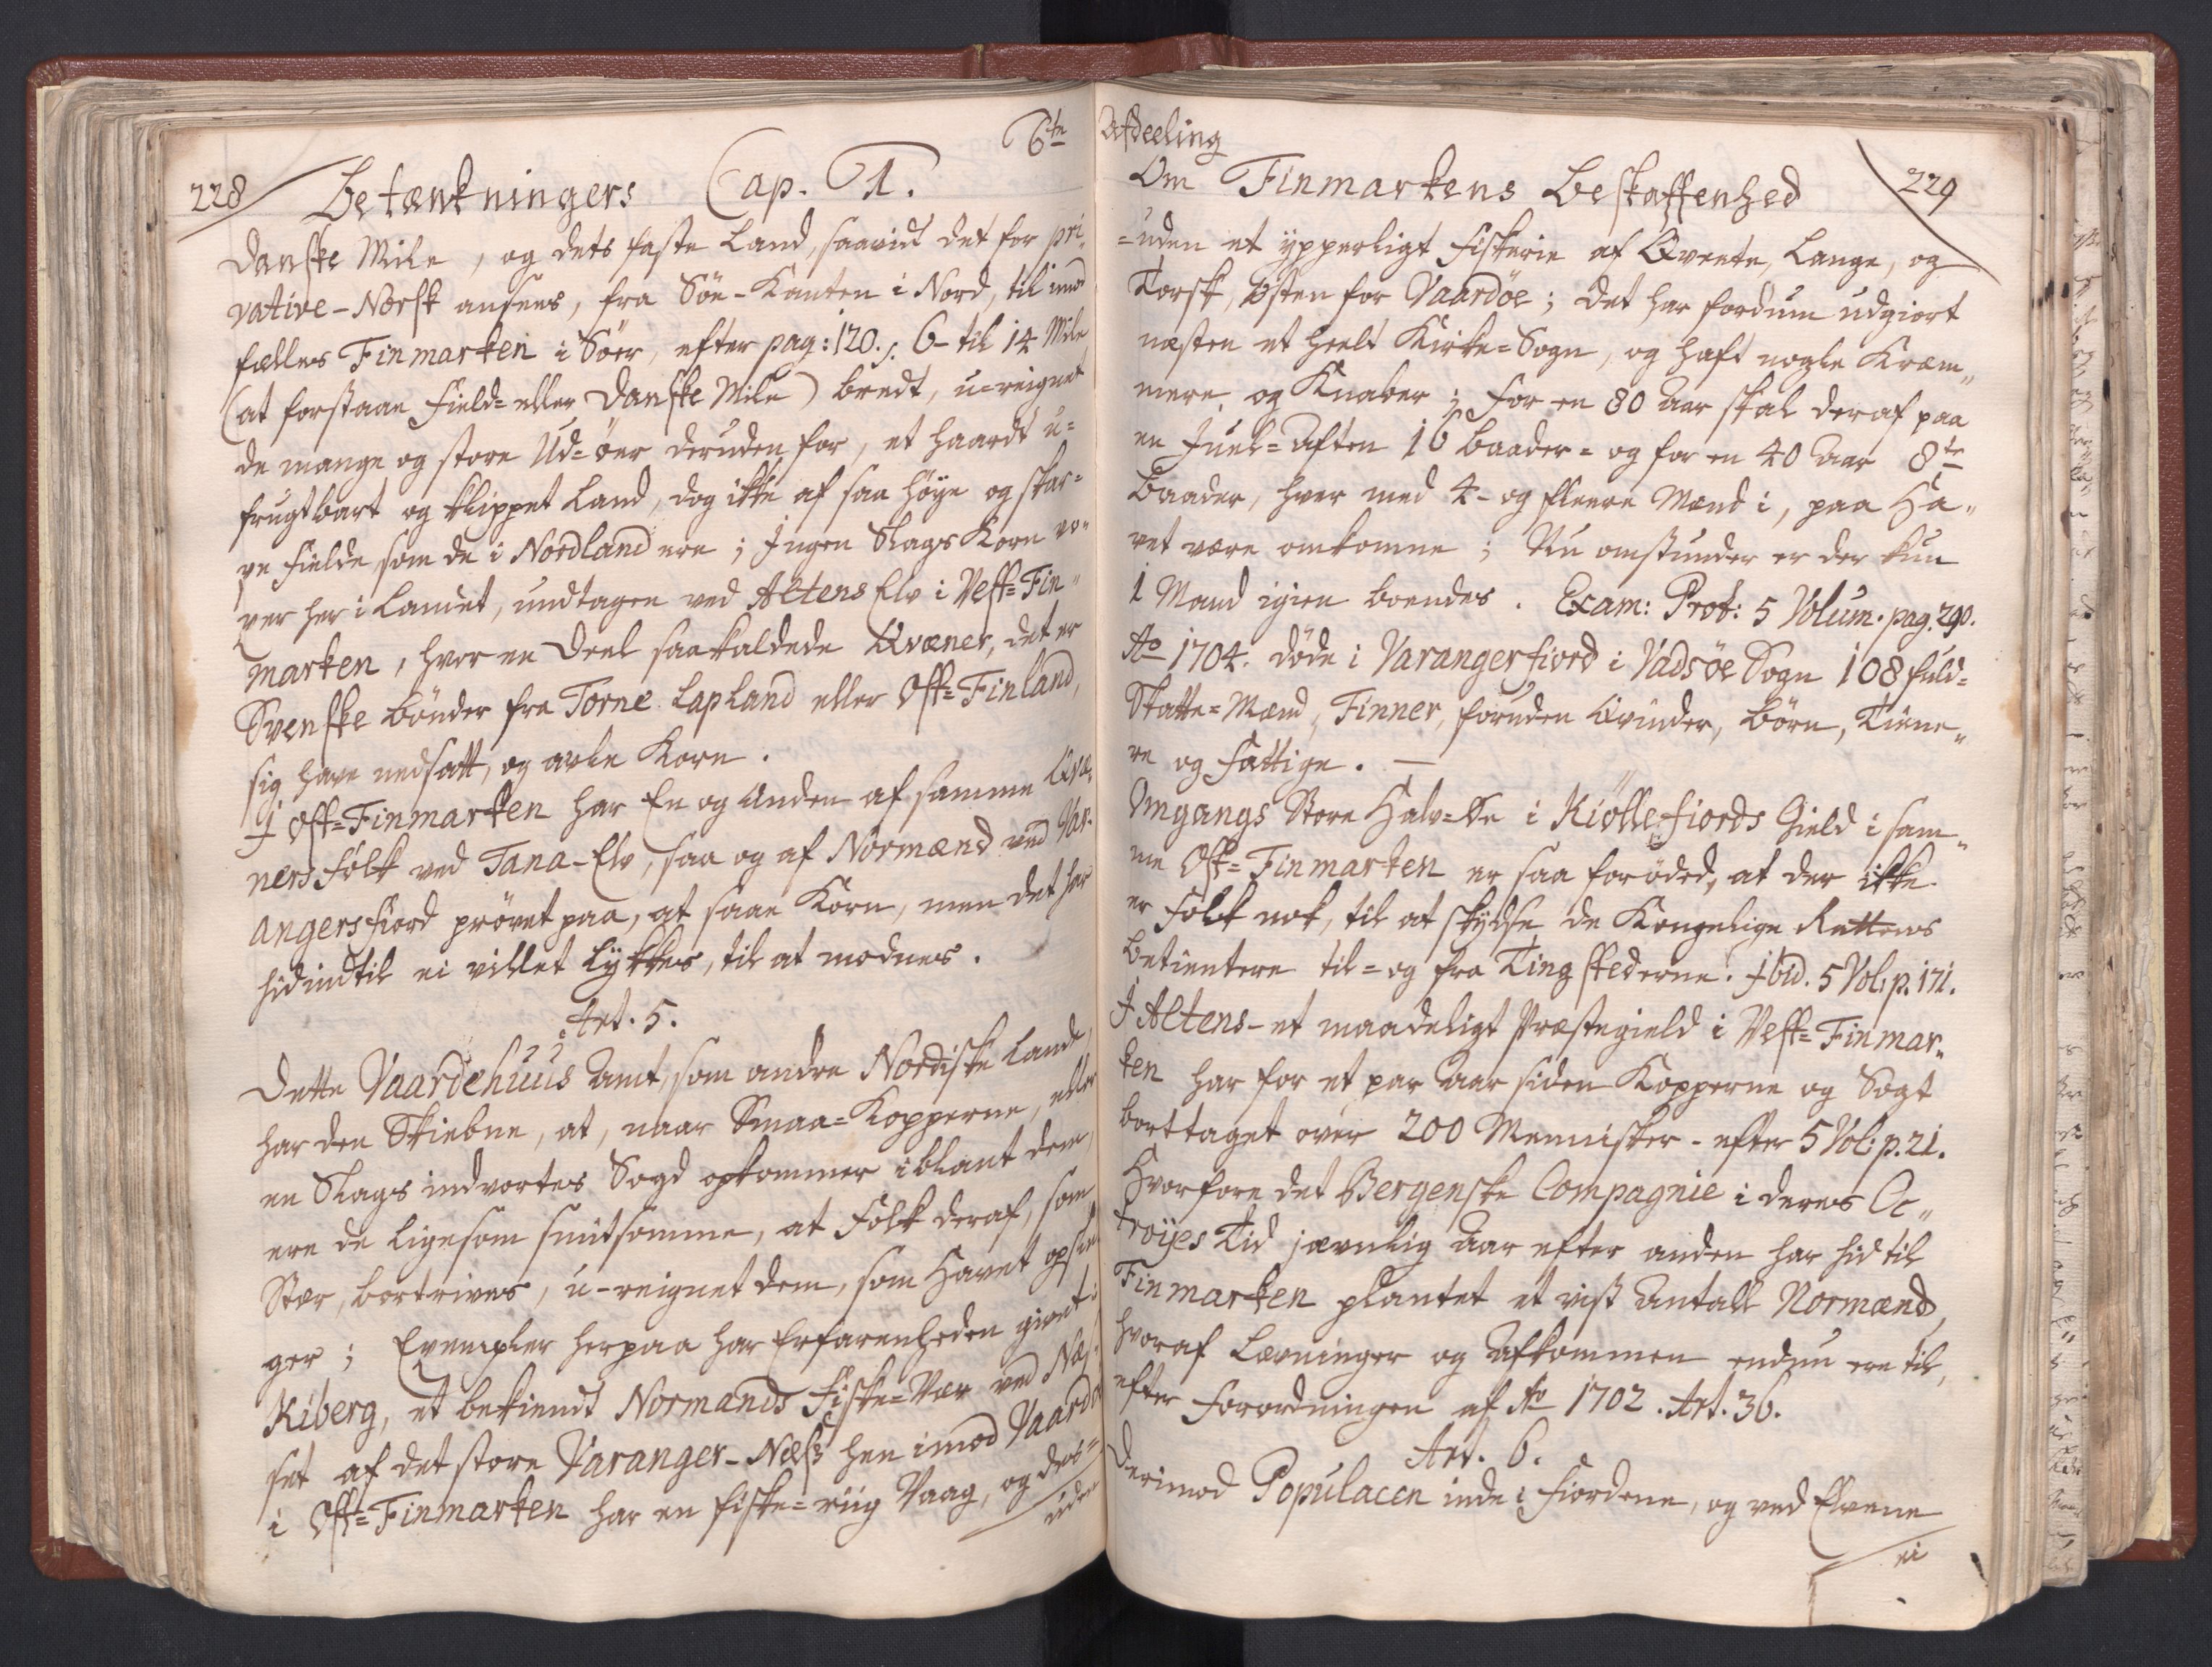 6te Afdeeling
228 Betænkningers Cap. 1.
Danske Mile, og dets faste Land, saavidt det for pri-
vative-Norsk ansees, fra Söe-Kanten i Nord, til imod
fælles Finmarken i Söer, efter pag: 120. /: 6- til 14 Mile
(at forstaae Field- eller Danske Mile) bredt, u-reignet
de mange og store Ud-öer deruden for, et haardt u-
frugtbart og klippet Land, dog ikke af saa höye og skar-
pe Fielde som de i Nordland ere; Ingen Slags Korn vo-
xer her i Landet, undtagen ved Altens Elv i Vest-Fin-
marken, hvor en Deel saakaldede Qvæner, det er
Svenske bönder fra Torne Lapland eller Ost-Finland,
sig have nedsatt, og avle Korn.
I Ost-Finmarken har En og Anden af samme Qvæ-
ners Folk ved Tana-Elv, saa og af Normænd ved Var-
angersfiord prövet paa, at saae Korn, men det har
hidindtil ei villet lykkes, til at modnes.
Art. 5.
Dette Vaardehuus Amt, som andre Nordiske Lande,
har den Skiebne, at, naar Smaa-Kopperne, eller
en Slags indvortes Sogd opkommer iblant dem,
ere de ligesom smitsomme, at Folk deraf, som
Stær, bortrives, u-reignet dem, som Havet opslu-
ger; Exempler herpaa har Erfarenheden givet i
Kiberg, et bekiendt Normands Fiske-Vær ved Næ-
set af det store Varanger-Næss hen imod Vaardöe
i Ost-Finmarken har en fiske-riig Vaag, og des-
uden
Om Finmarkens Beskaffenhed 229
=uden et ypperligt Fiskerie af Qveete, Lange, og
Torsk, Östen for Vaardöe; det har fordum udgiort
næsten et heelt Kirke-Sogn, og haft nogle Kræm-
mere og Knaber; for en 80 Aar skal deraf paa
en Juel-Aften 16 baader- og for en 40 Aar 8te
baader, hver med 4- og fleere Mænd i, paa Ha-
vet være omkomne; Nu omstunder er der kun
1 Mand igien boendes. Exam: Prot: 5 Volum. pag. 290.
Ao 1704. döde i Varangerfiord i Vadsöe Sogn 108 fuld-
Skatte-Mænd, Finner, foruden Qvinder, Börn, Tiene-
re og Fattige. —
Omgangs Store Halv-Öe i Kiöllefiords Gield i sam-
me Ost-Finmarken er saa foröded, at der ikke
er Folk nok, til at skydse de Kongelige Rettens
betientere til- og fra Tingstederne. Ibid. 5 Vol: p. 171.
I Altens- et maadeligt Præstegield i Vest-Finmar-
ken har for et par Aar siden Kopperne og Sogt
borttaget over 200 Mennisker - efter 5 Vol: p. 21.
Hvorfore det Bergenske Compagnie i deres Oc-
troyes Tid jævnlig Aar efter anden har hid til
Finmarken plantet et vist Antall Normænd,
hvoraf Levninger og Afkommen endnu ere til,
efter Forordningen af Ao 1702. Art. 36.
Art. 6.
Derimod Populacen inde i Fiordene, og ved Elvene
ei